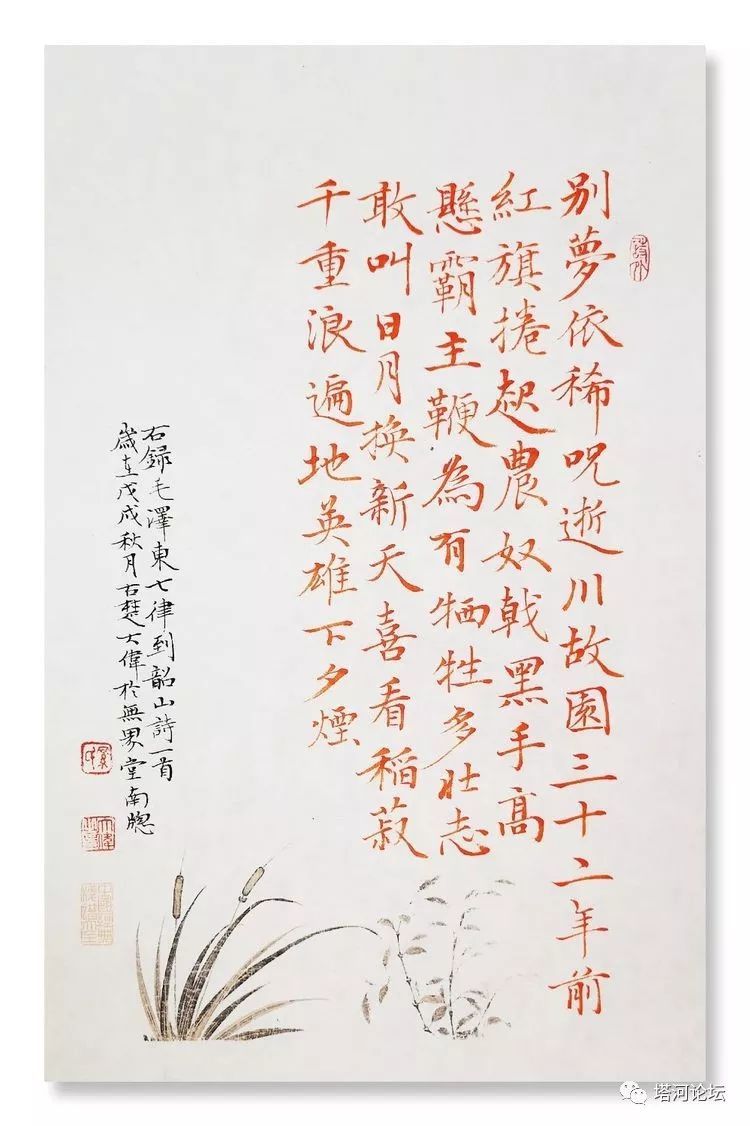 别夢依稀呪逝川故園三十二年前
紅旗捲起農奴戟黑手高
懸霸主鞭為有牺牲多壮志
敢叫日月换新天喜看稻菽
千重浪遍地英雄下夕煙
右録毛澤東七律到韶山詩一首
歲在戊戌秋月古楚大偉於無界堂南牕
塔河论坛